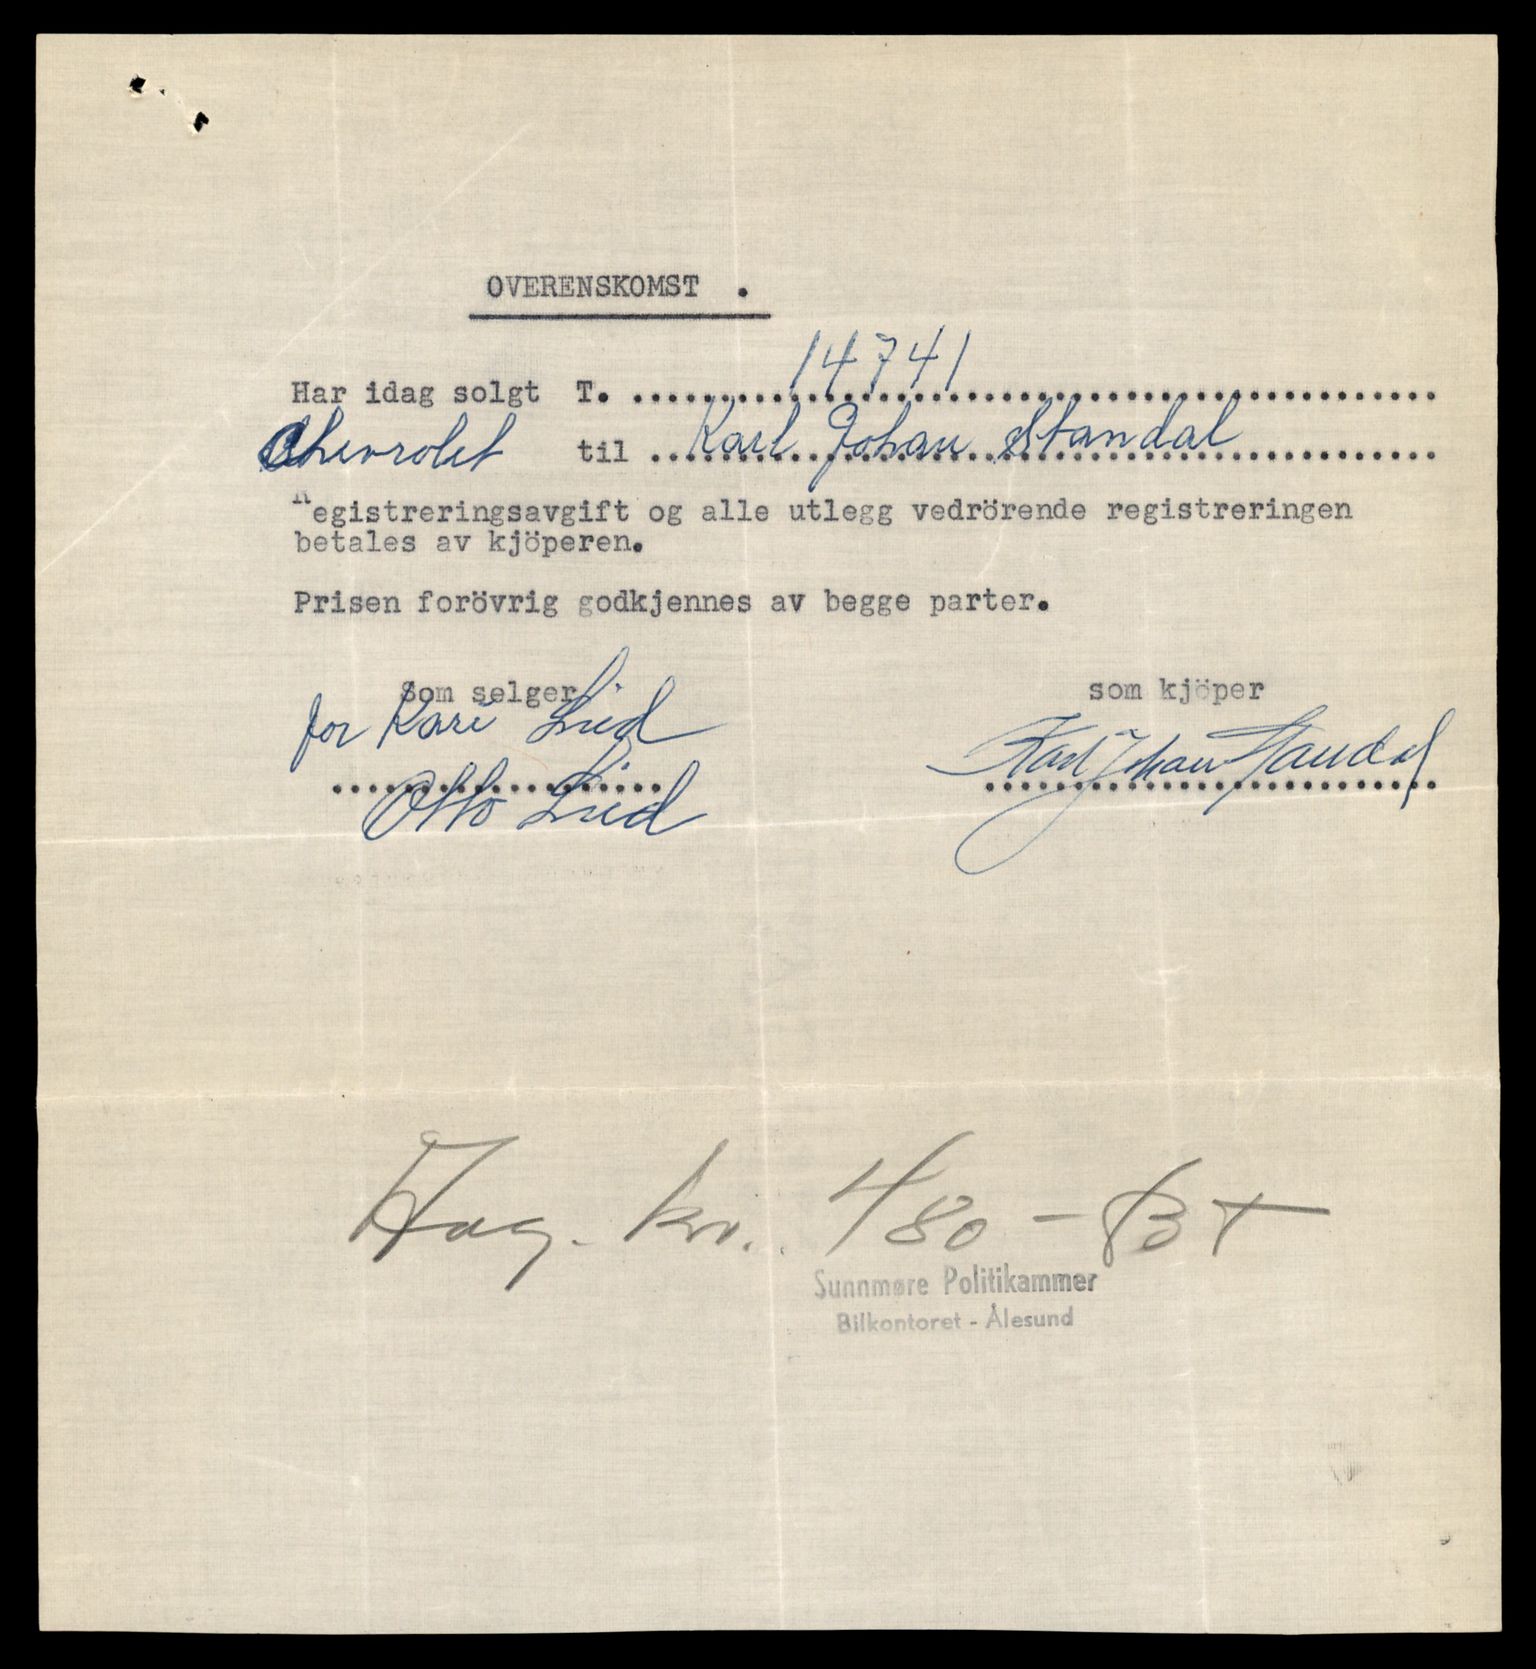 OVERENSKOMST .
Har idag solgt T. 14741
Chevrolet til Karl Johan Standal
Registreringsavgift og alle utlegg vedrörende registreringen
betales av kjöperen.
Prisen forövrig godkjennes av begge parter.
Som selger som kjöper
for Kari Lid Karl Johan Standal
Otto Lid
kr. 480 -
Sunnmøre Politikammer
Bilkontoret - Ålesund